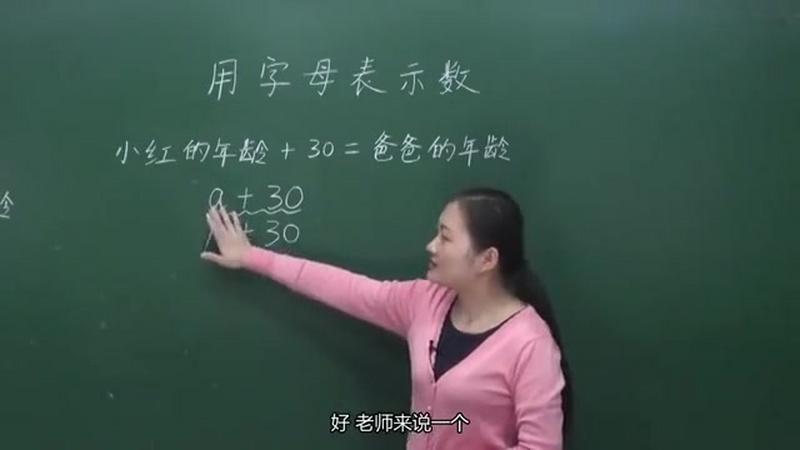 用字母表示数
小红的年龄+30=爸爸的年龄
a+30
+30
龄
好 老师来说一个